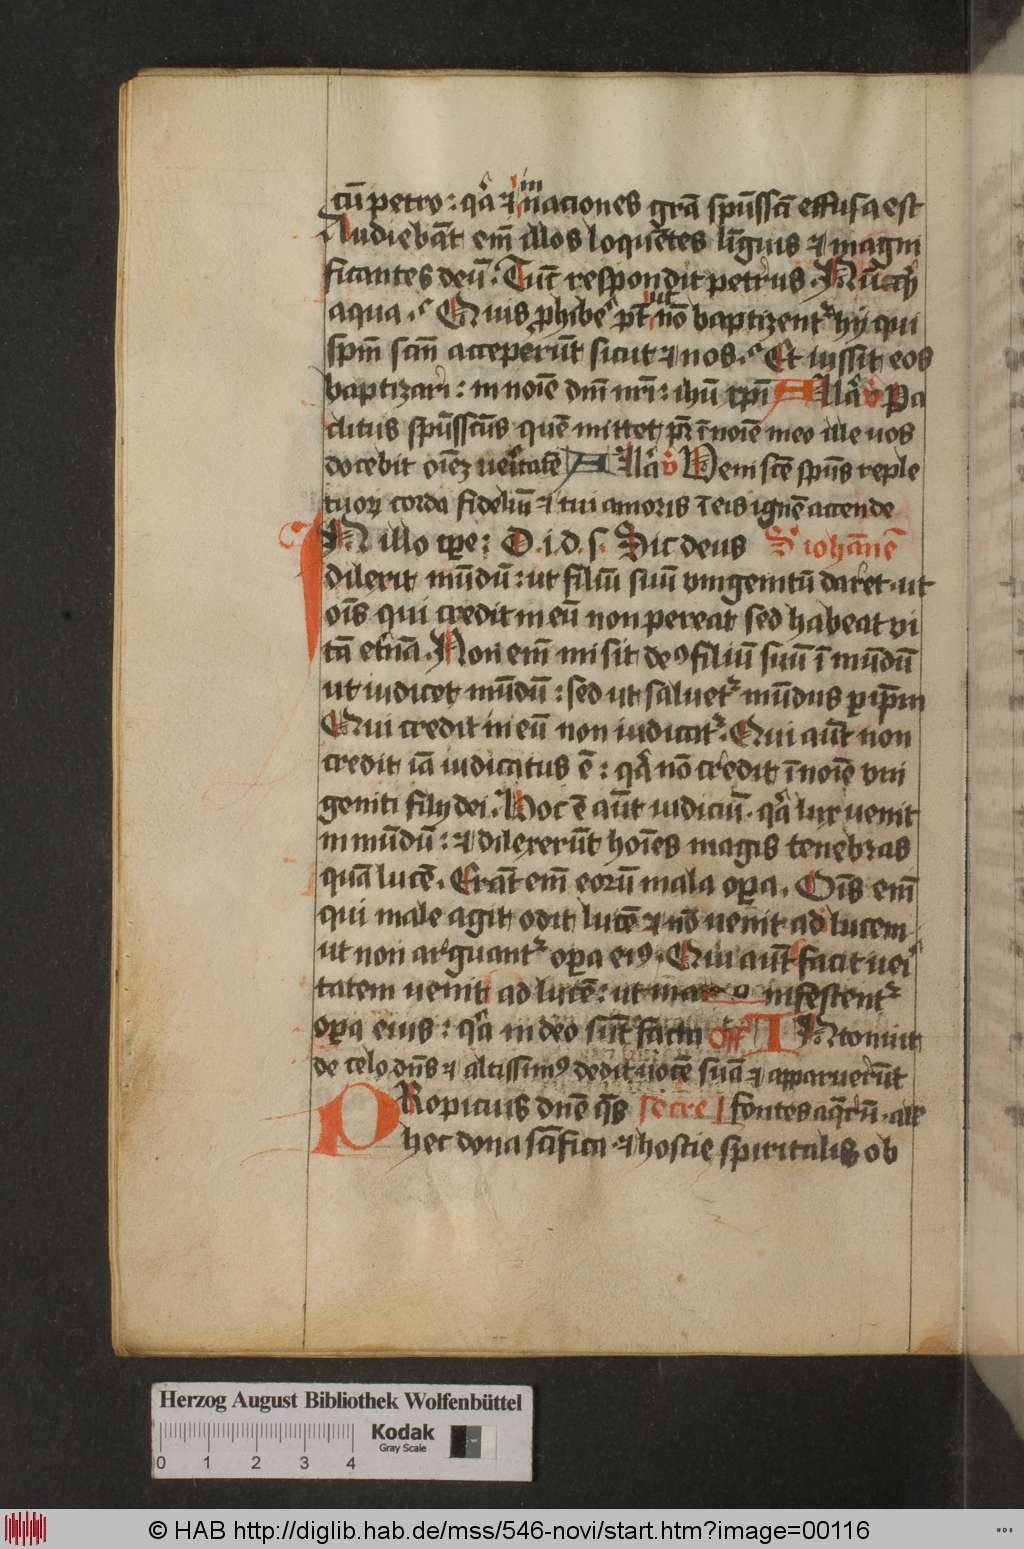 cū petro : qꝛ̄ ⁊ in naciones grā spūssc̄i effusa est
Audiebāt em̄ illos loquētes līguis ⁊ magni
ficantes deū : Tūc respondit petrus . Nūc
aqua . Quis ꝓhibeꝰ pt̄ ut nō baptizent᷑ hij qui
spm̄ scm̄ acceperūt sicut ⁊ nos . Et iussit eos
baptizari : in noīe dn̄i nr̄i : ihū xpī Allā v̄ Pa
clitus spūsscūs quē mittet pr̄ ī noīe meo ille vos
docebit oīeꝫ ueritatē Allā v̄ Veni scē spūs reple
tuoꝝ corda fideliū ⁊ tui amoris ī eis ignē accende
IN illo tꝑe : D . i . d . s . Sic deus S iohannē
dilexit mūdū : ut filiū suū vnigenitū daret . ut
oīs qui credit in eū non pereat sed habeat vi
tā et̄nā . Non em̄ misit deꝰ filiū suū ī mūdū
ut iudicet mūdū : sed ut saluet᷑ mūdus ꝑ ip̄m
Qui credit in eū non iudicat᷑ . Qui aūt non
credit iā iudicatus ē : qꝛ̄ nō credit ī noīe vni
geniti filij dei . Hoc ē aūt iudiciū . qꝛ̄ lux uenit
in mūdū : ⁊ dilexerūt hoīes magis tenebras
quā lucē . Erāt em̄ eorū mala oꝑa . Oīs em̄
qui male agit odit lucē ⁊ nō uenit ad lucem
ut non arguant᷑ oꝑa eiꝰ . Qui aūt facit ueri
tatem uenit ad lucē : ut ma nifestent᷑
oꝑa eius : qꝛ̄ in deo sūt facta Off INtonuit
de celo dn̄s ⁊ altissimꝰ dedit uocē suā ⁊ apparuerūt
PRopicius dn̄e q̄s secre fontes aq̄rū . alle
hec dona sc̄ifica ⁊ hostie spiritalis ob
Herzog August Bibliothek Wolfenbüttel
Kodak
Gray Scale
0 1 2 3 4
© HAB http://diglib.hab.de/mss/546-novi/start.htm?image=00116